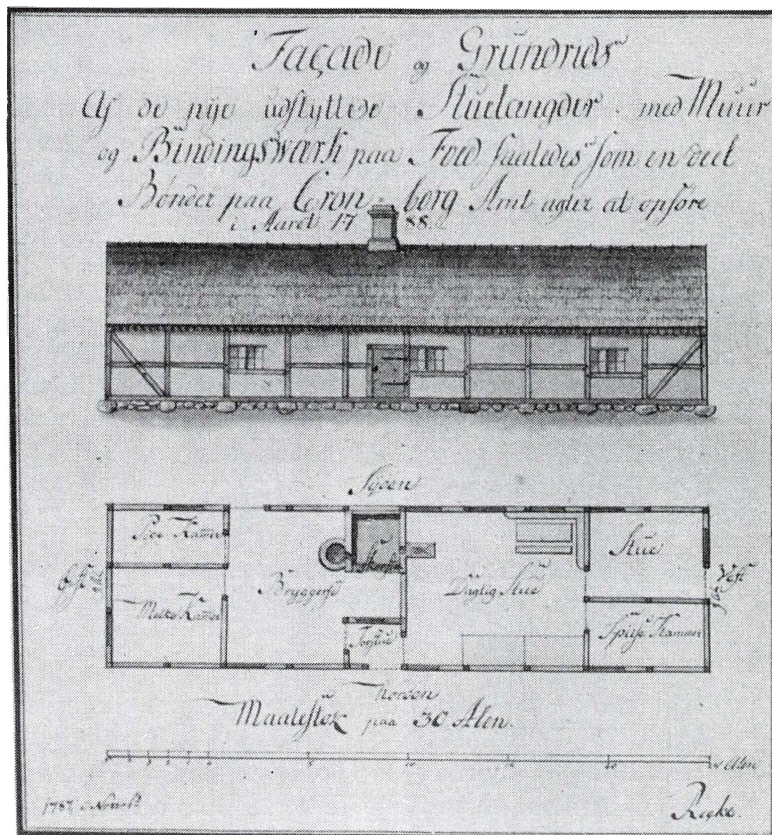 Façade og Grundrids
Af de nye udflyttede Stuelængder med Muur
og Bindingswærk paa Foed saaledes som en deel
Bønder paa Cronborg Amt agter at opføre
i Aaret 1788.
Syden
Pige Kamer
Melke Kamer
Øst
Bryggers
Skorsten
Forstue
Daglig Stue
Stue
Spiise Kammer
Vest
Norden
Maalestok paa 30 Alen.
5
10
20
1787